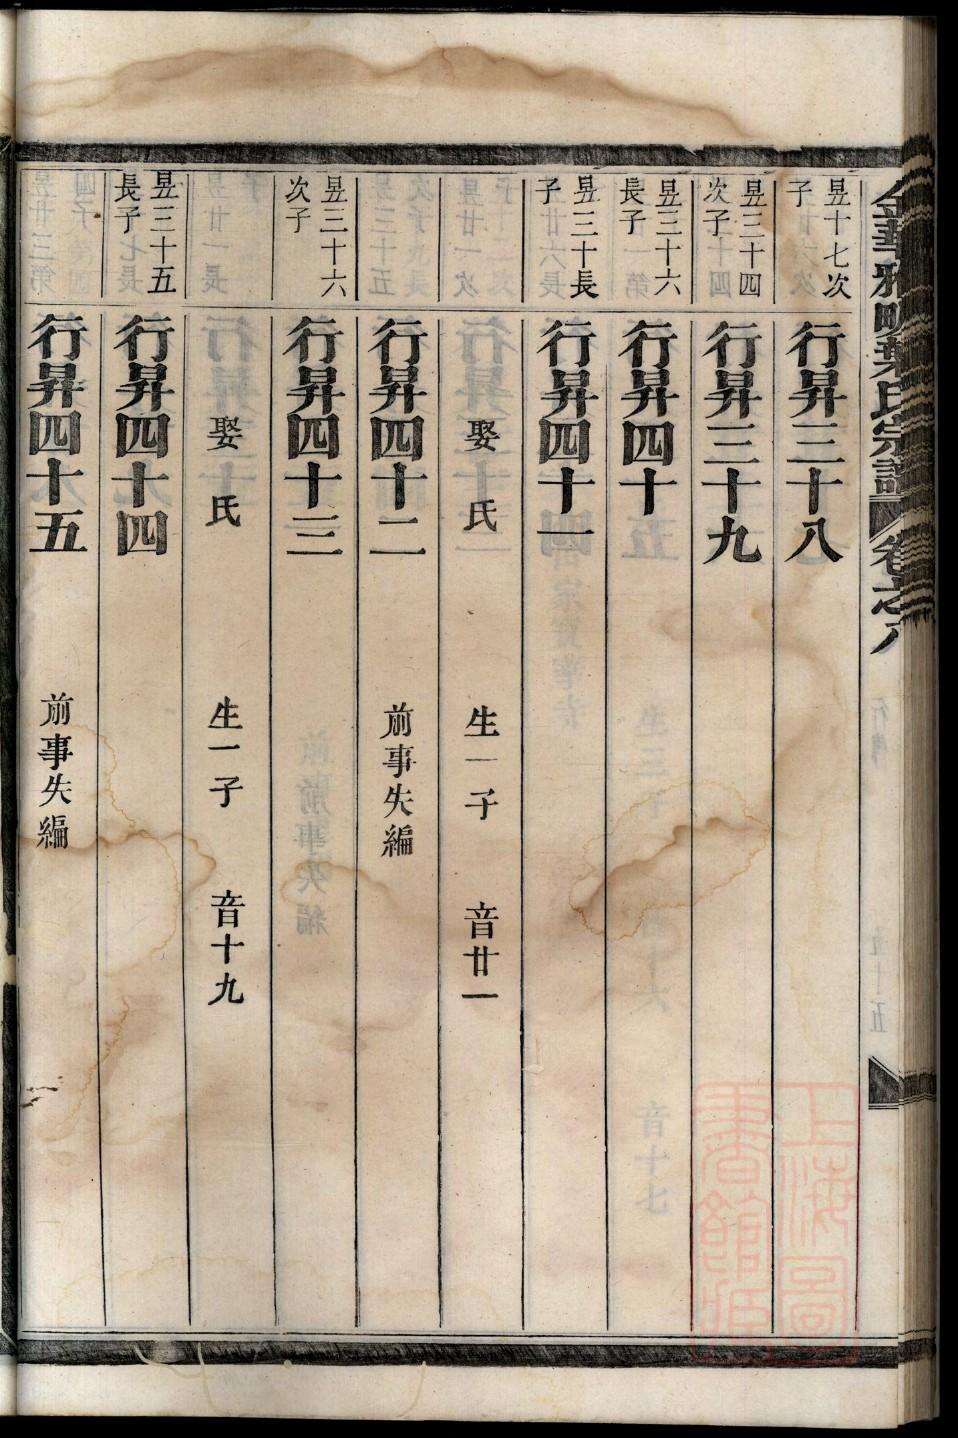 金華雅畈葉氏宗譜 卷之八
昱十七次子
行昇三十八
昱三十四次子
行昇三十九
昱三十六長子
行昇四十
昱三十長子
行昇四十一
娶 氏 生一子 音廿一
行昇四十二 前事失編
昱三十六次子
行昇四十三
娶 氏 生一子 音十九
昱三十五長子
行昇四十四
行昇四十五 前事失編
上海圖書館藏